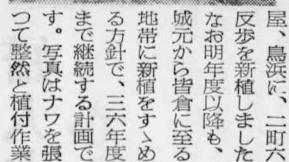 屋、鳥浜に、二町六
反歩を新植しました
なお明年度以降も、
城元から皆倉に至る
地帯に新植をすゝめ
る方針で、三六年度
まで継続する計画で
す。写真はナワを張
つて整然と植付作業